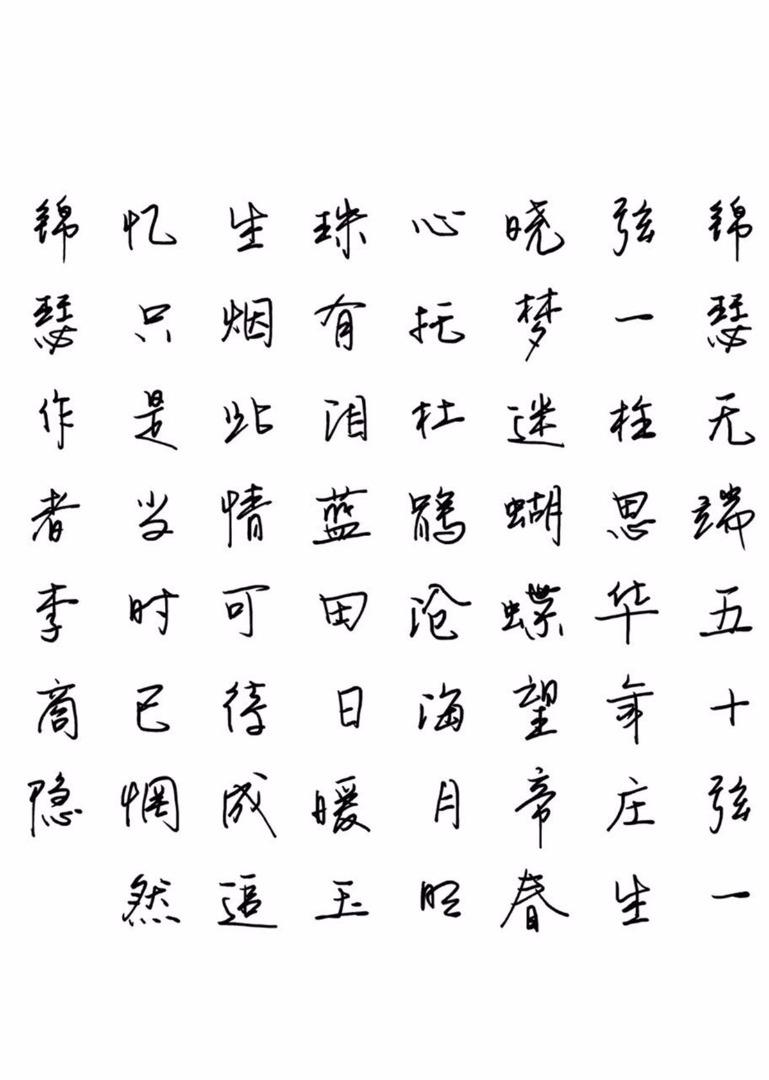 锦瑟无端五十弦一
弦一柱思华年庄生
晓梦迷蝴蝶望帝春
心托杜鹃沧海月明
珠有泪蓝田日暖玉
生烟此情可待成追
忆只是当时已惘然
锦瑟作者李商隐